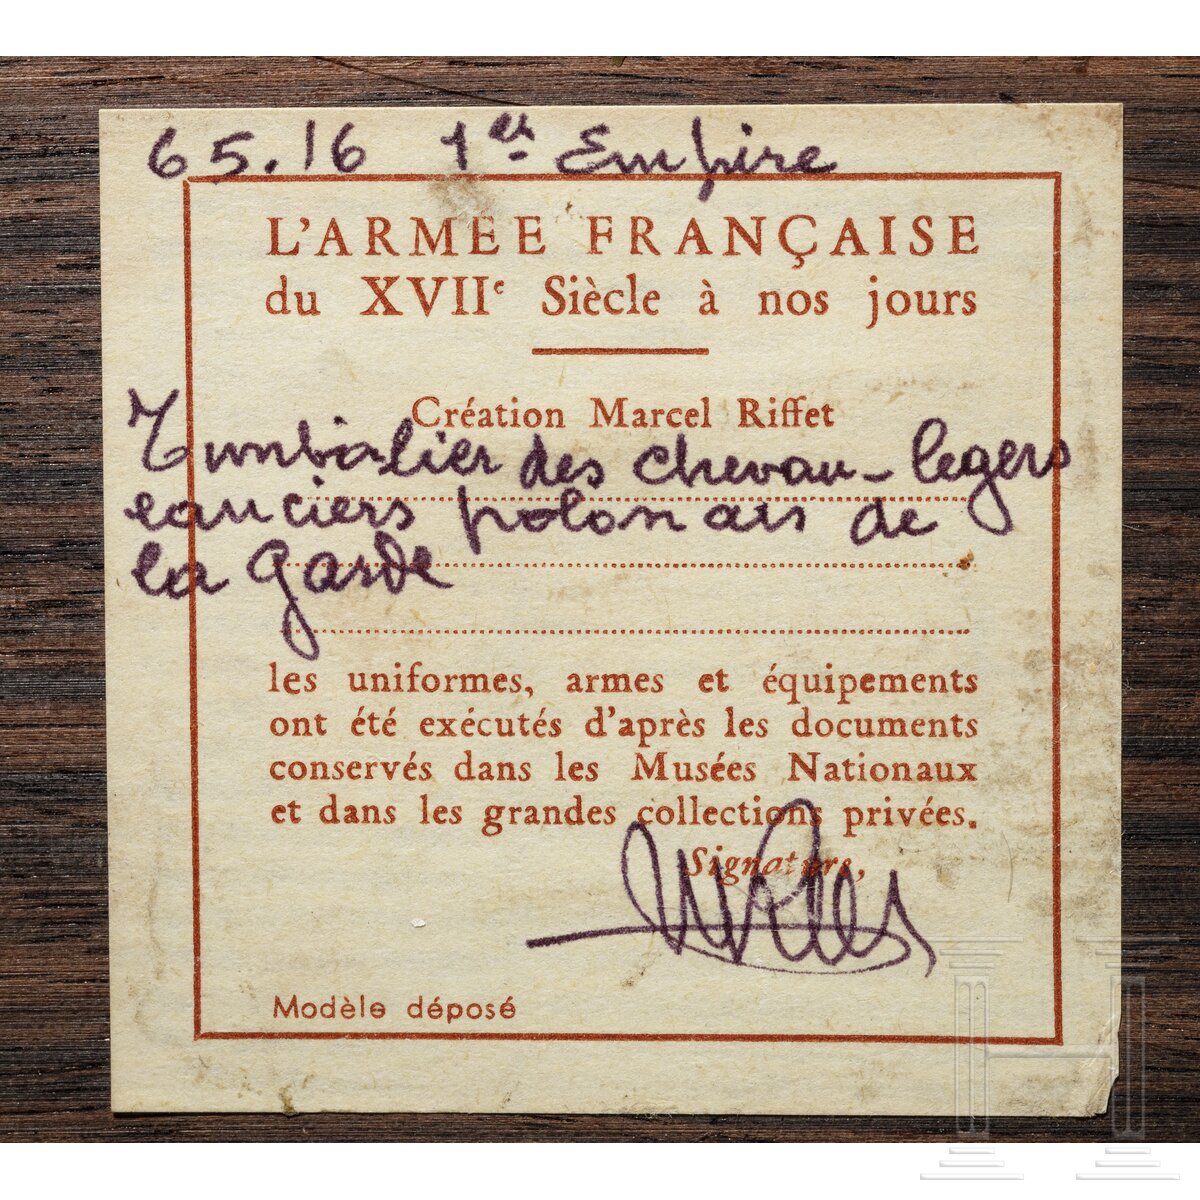 65.16 1er Empire
L'ARMÉE FRANÇAISE
du XVIIe Siècle à nos jours
Création Marcel Riffet
Tumbalier des chevau-legers
lanciers polonais de
la Garde
les uniformes, armes et équipements
ont été exécutés d'après les documents
conservés dans les Musées Nationaux
et dans les grandes collections privées.
Signature,
Modèle déposé